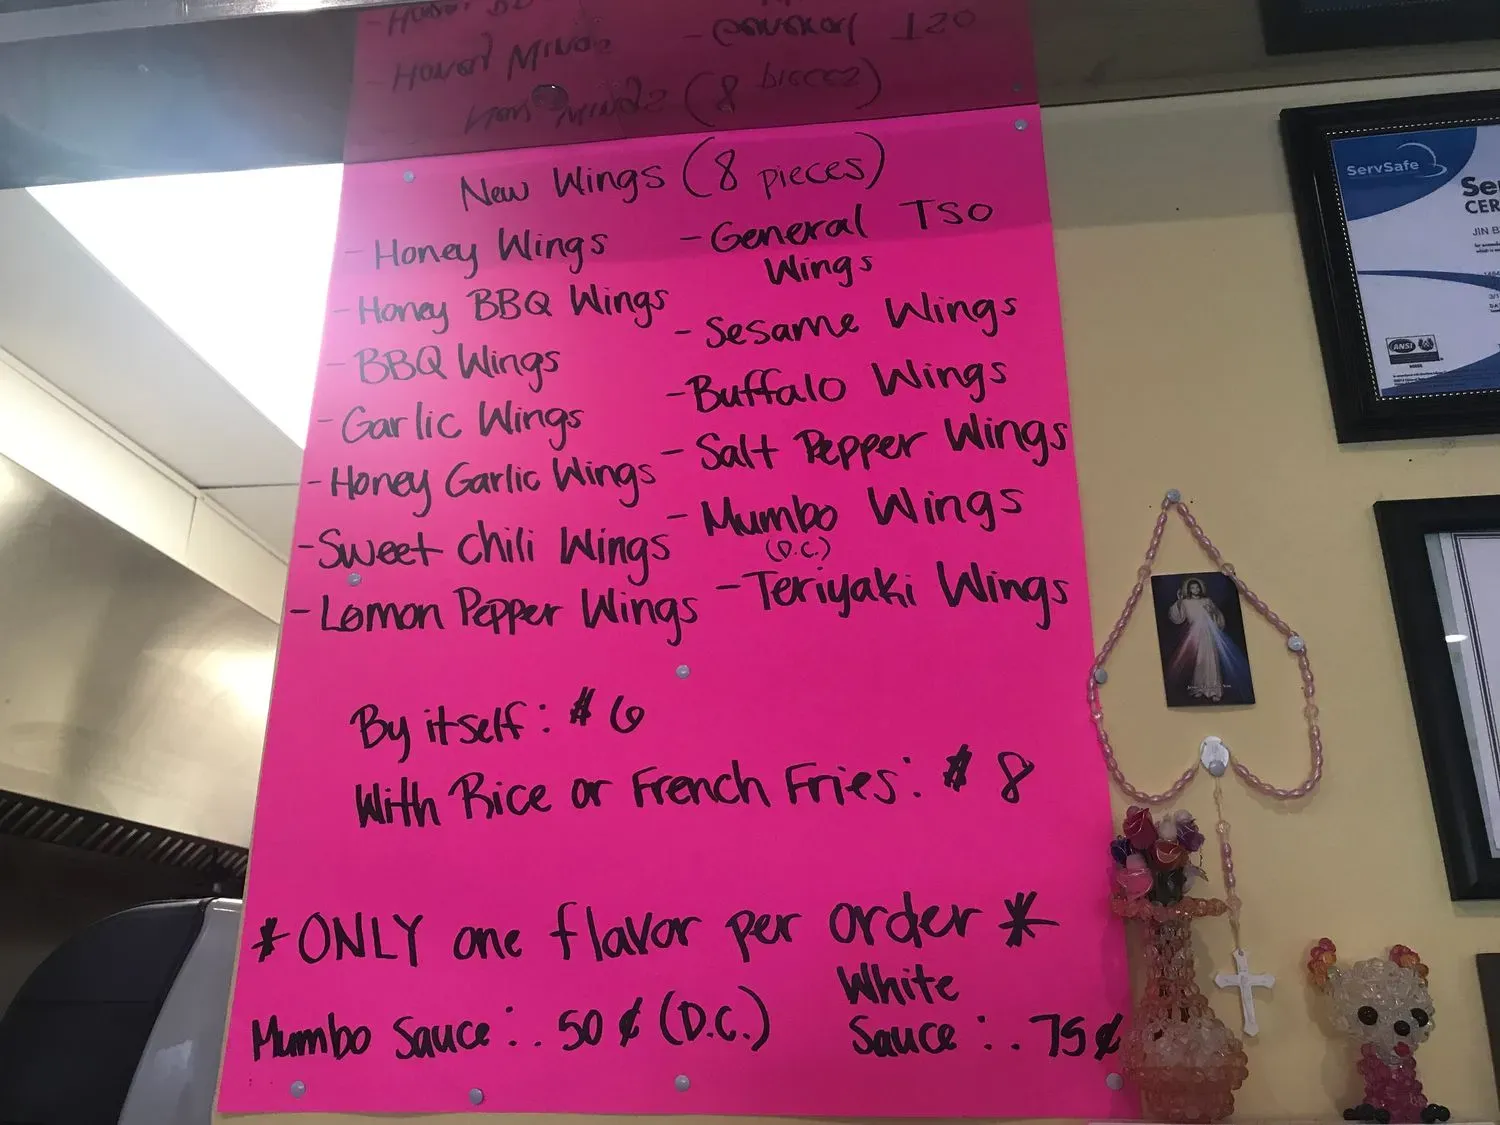 New Wings (8 pieces)
- Honey Wings
- Honey BBQ Wings
- BBQ Wings
- Garlic Wings
- Honey Garlic Wings
- Sweet Chili Wings
- Lemon Pepper Wings
- General TSO
Wings
- Sesame Wings
- Buffalo Wings
- Salt Pepper Wings
- Mumbo Wings
(D.C.)
- Teriyaki Wings
By itself: $6
With Rice or French Fries: $8
*ONLY one flavor per order*
Mumbo Sauce: . 50¢ (D.C.)
White
Sauce: . 75¢
ServSafe
CER
JIN B
ANSI